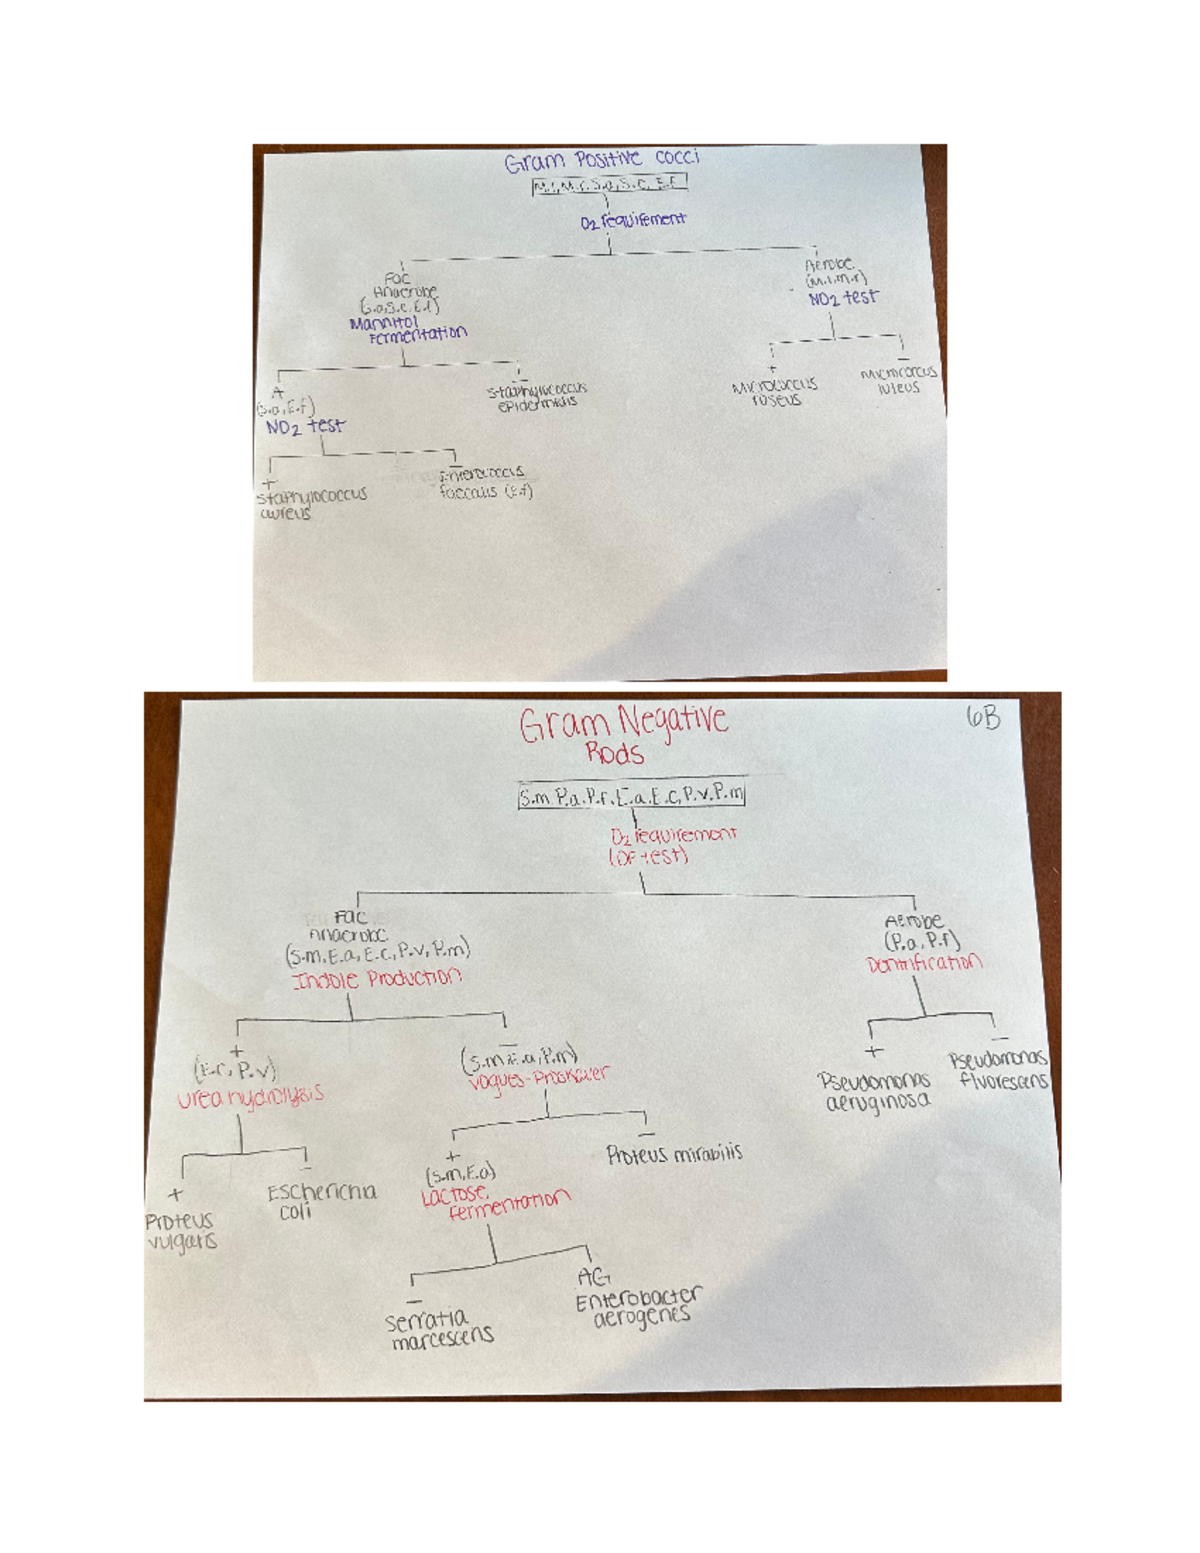 Gram Positive cocci
M.l, M.r, S.a, S.e, E.f
O2 requirement
Fac
Anaerobe
(S.a, S.e, E.f)
Mannitol
Fermentation
Aerobe
(M.l, M.r)
NO2 test
A
(S.a, E.f)
NO2 test
-
Staphylococcus
epidermidis
+
Micrococcus
roseus
-
Micrococcus
luteus
+
Staphylococcus
aureus
-
Enterococcus
faecalis (E.f)
Gram Negative
Rods
6B
S.m, P.a, P.f, E.a, E.c, P.v, P.m
O2 requirement
(OF test)
Fac
Anaerobe
(S.m, E.a, E.c, P.v, P.m)
Indole Production
Aerobe
(P.a, P.f)
+
(E.c, P.v)
Urea hydrolysis
-
(S.m, E.a, P.m)
+
Pseudomonas
aeruginosa
-
Pseudomonas
fluorescens
+
Proteus
vulgaris
-
Escherichia
coli
+
(S.m, E.a)
Lactose
fermentation
-
Proteus mirabilis
-
Serratia
marcescens
AG
Enterobacter
aerogenes